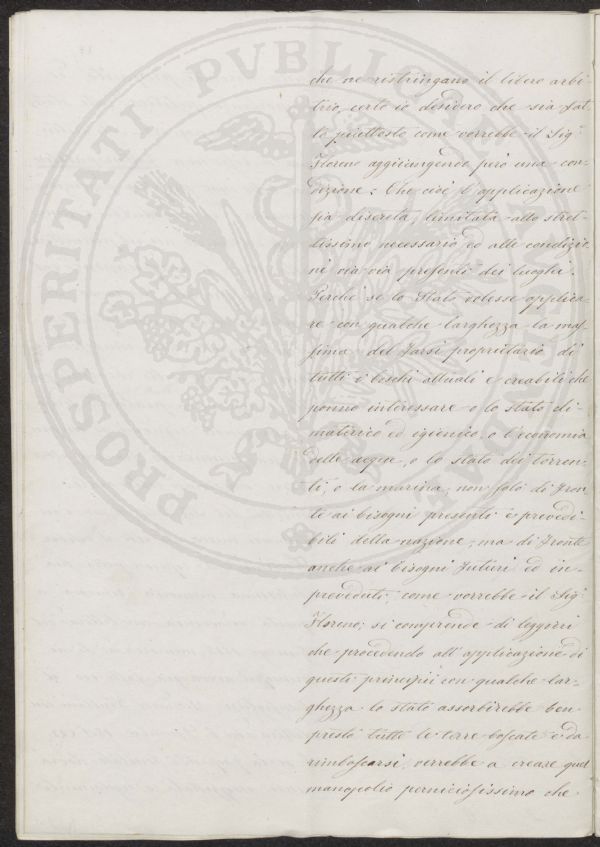 PROSPERITATI PVBLICAE
che ne ristringano il libero arbi-
trio, certo io desidero che sia fat-
to piuttosto come vorrebbe il Sig.
Floreno aggiungendo però una con-
dizione: Che cioè l'applicazione
sia discreta, limitata allo stret-
tissimo necessario ed alle condizio
ni via via presenti dei luoghi.
Perchè se lo Stato volesse applica-
re con qualche larghezza la mas-
sima del farsi proprietario di
tutti i boschi attuali e creabili che
ponno interessare o lo stato cli-
materico ed igienico, o l'economia
delle acque, o lo stato dei torren-
ti, o la marina, non solo di fron
te ai bisogni presenti e prevedi-
bili della nazione, ma di fronte
anche ai bisogni futuri ed im-
preveduti, come vorrebbe il Sig.
Floreno; si comprende di leggieri
che procedendo all'applicazione di
questi principii con qualche lar-
ghezza lo stato assorbirebbe ben-
presto tutte le terre boscate e da
rimboscarsi, verrebbe a creare quel
monopolio perniciosissimo che